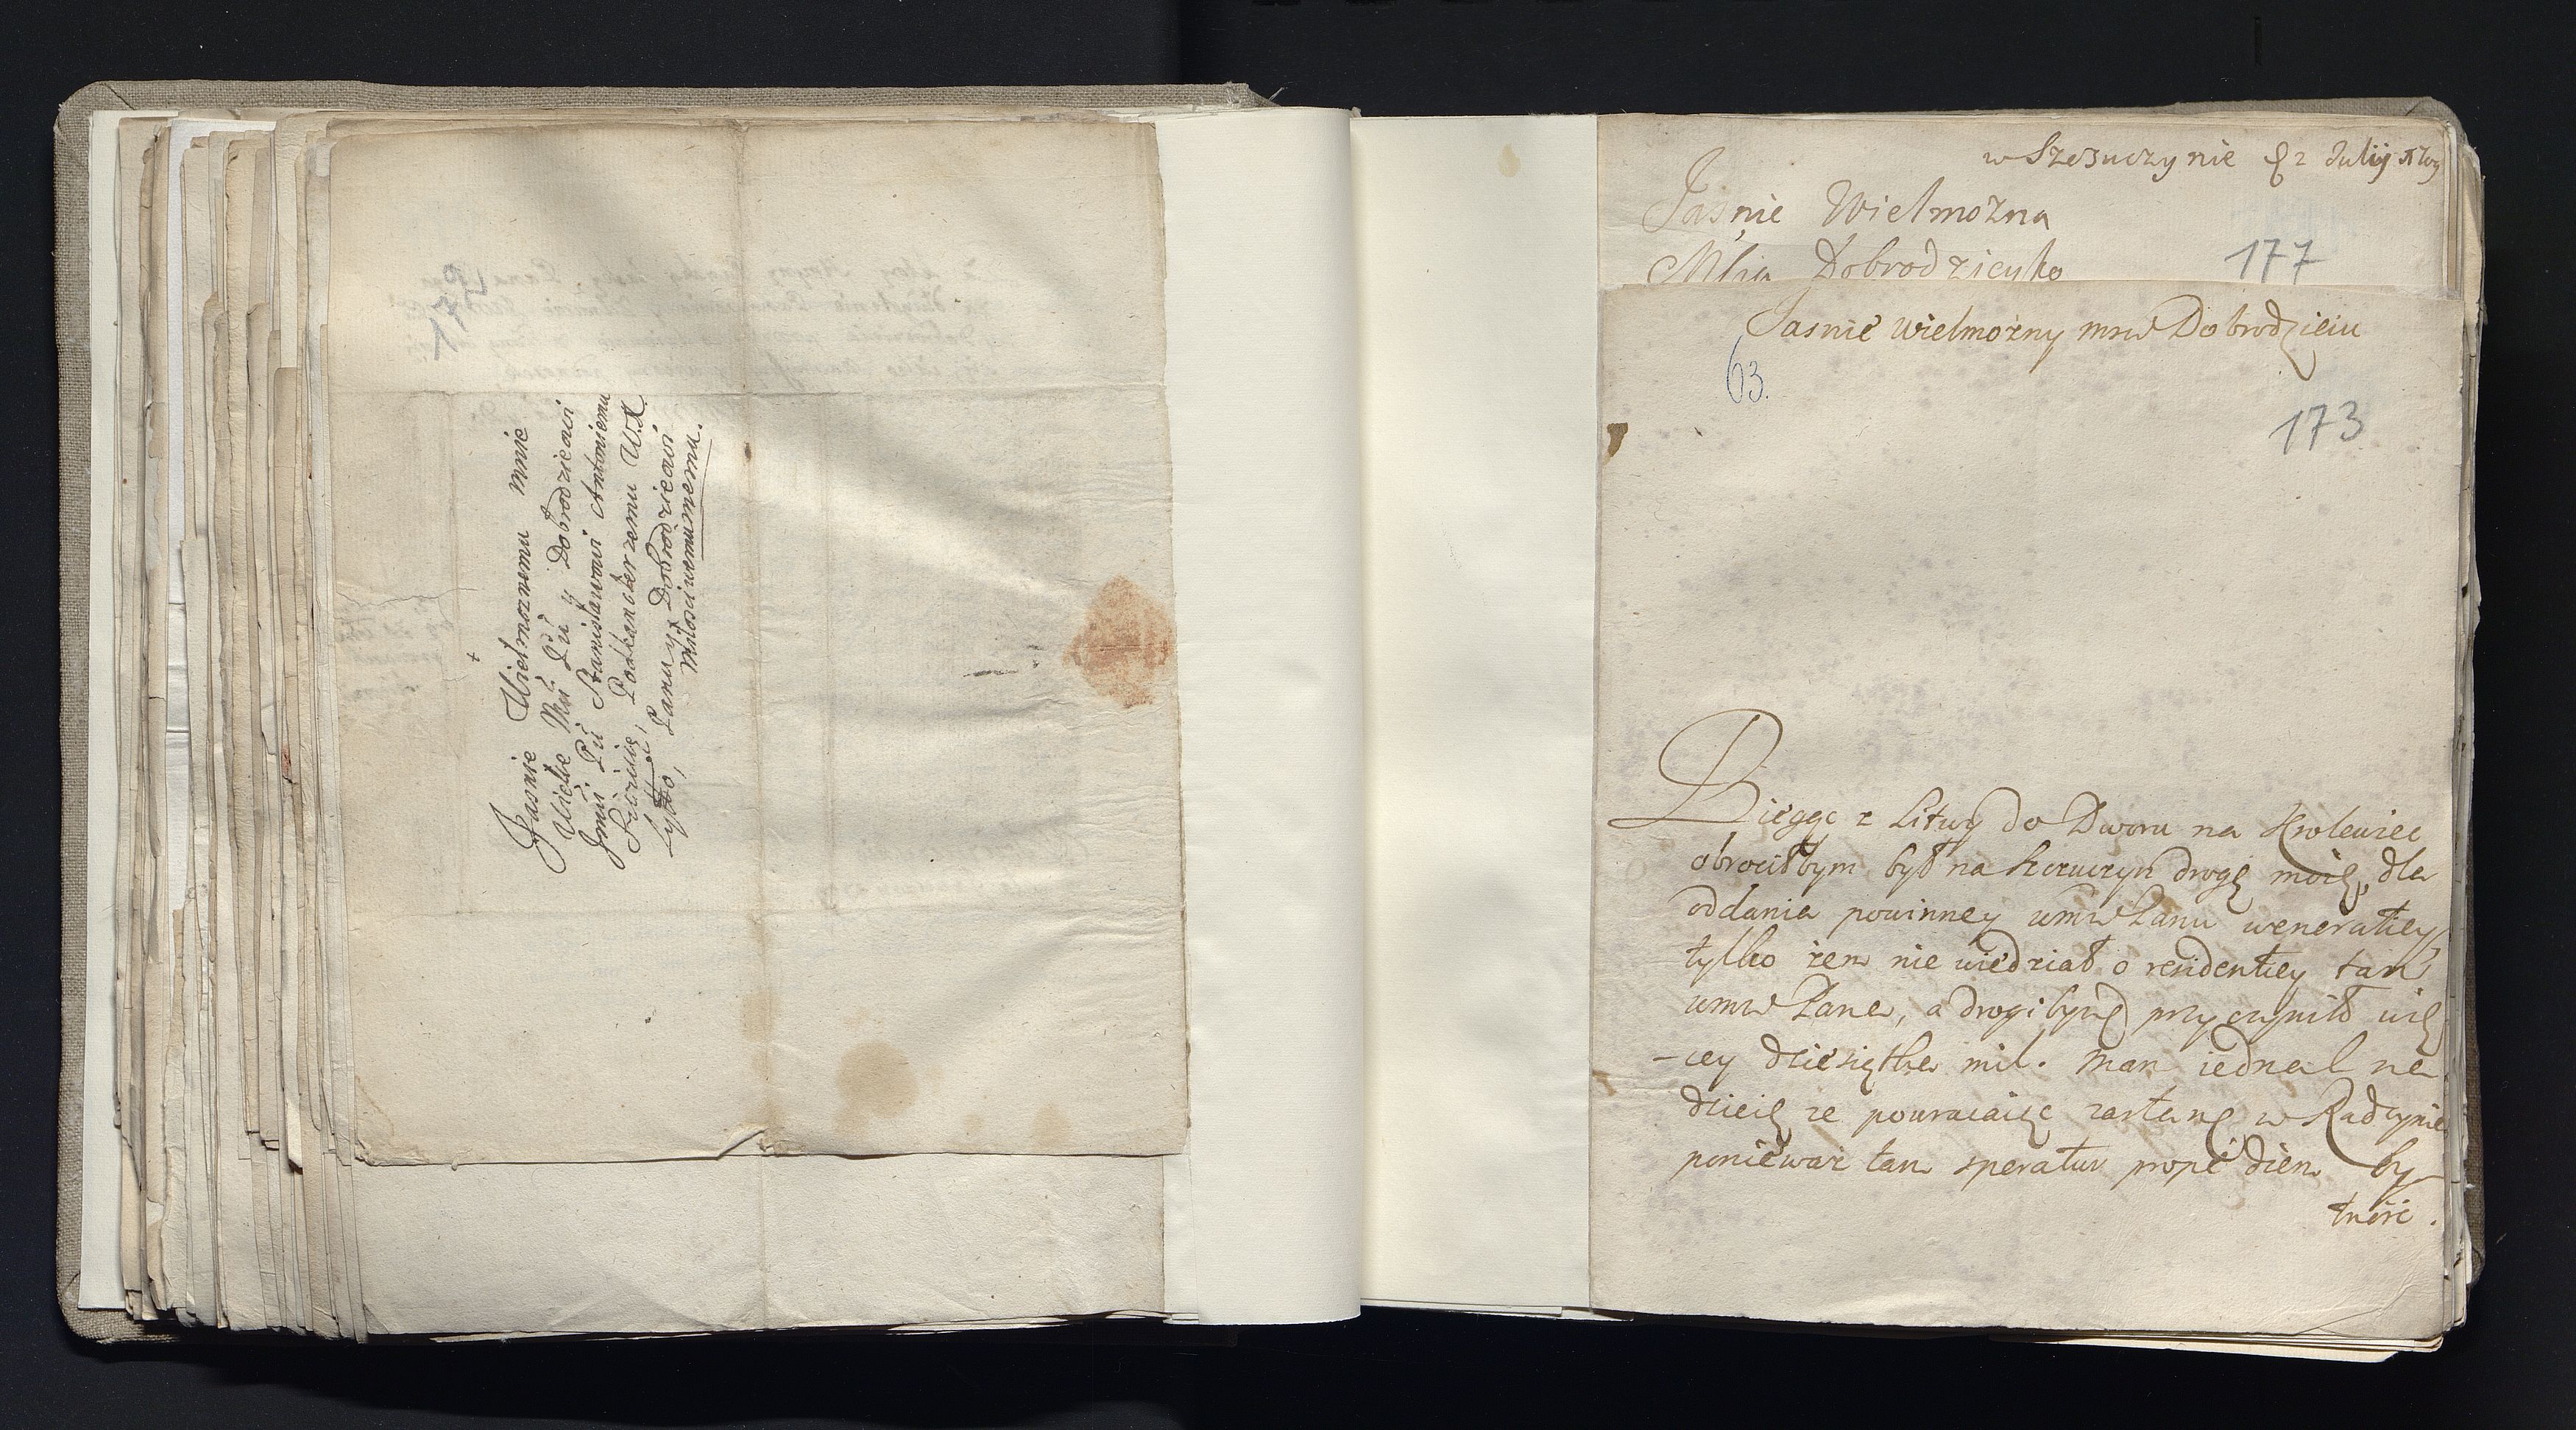 172
Jasnie Wielmoznemu Mnie
Wielce Mći Pu y Dobrodzieiowi
Jmći Pu Stanisławowi Antoniemu
Szczuce, Podkanclerzemu W. X.
Lytto, Panu y Dobrodzieiowi
Miłosciwemumemu.
w Szczuczynie 2 Julij
Jasnie Wielmożna
Mścia Dobrodzieyko
177
Jasnie wielmożny mśw Dobrodzieiu
63.
173
Biegąc z Litwy do Dworu na Krolewiec
obrociłbym był na Szczuczyn drogę moię, dla
oddania powinney wmśw Panu weneratiey,
tylko żem nie wiedział o residentiey tam
wmśw Pana, a drogibym przyczynił wię
-cey dziesiątka mil. Mam iednak na
dzieię ze powracaiąc zastanę w Radzynie
poniewaz tam speratur propè diem by
tność.